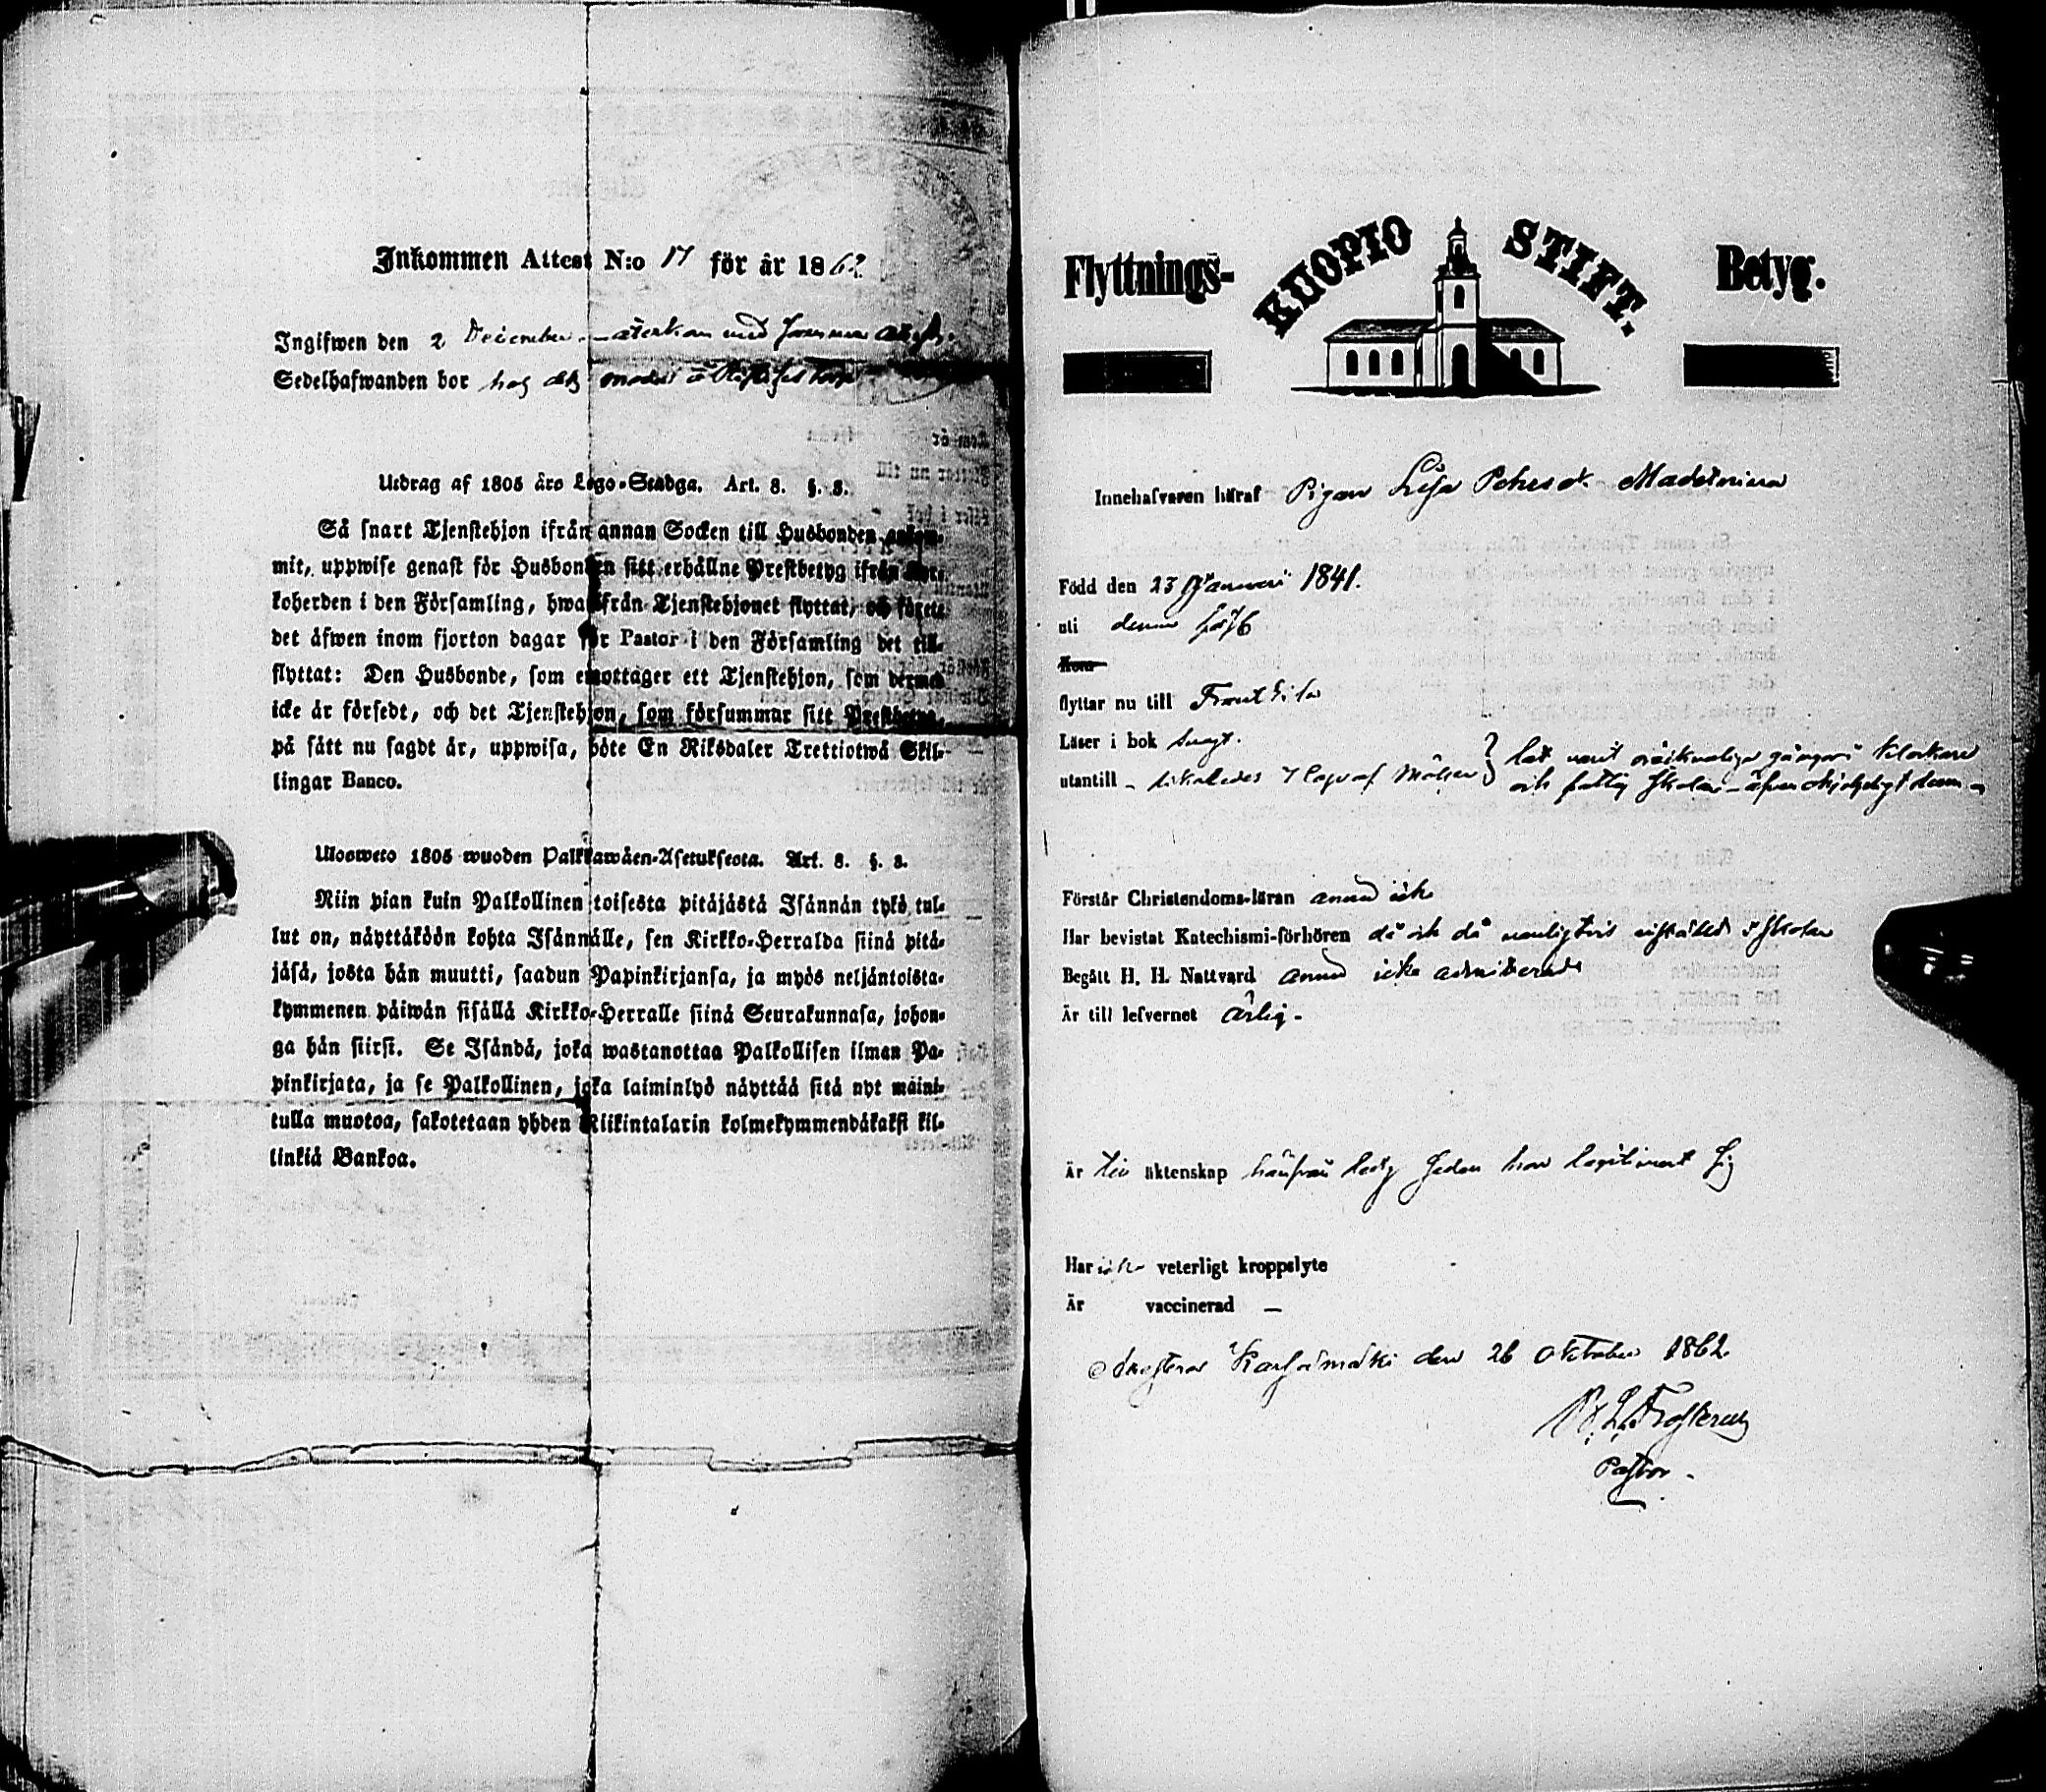 Inkommen Attest N:o 17 för år 1862
Ingifwen den 2 December återkom med samma attest.
Sedelhafwanden bor hos
Utdrag af 1805 års Lego-Stadga. Art. 8. §. 8.
Så snart Tjenstehjon ifrån annan Socken till Husbonden ankom-
mit, uppwise genast för Husbonden sitt erhållne Prestbetyg ifrån Kyr-
koherden i den Församling, hwarifrån Tjenstehjonet flyttat, och förete
det äfwen inom fjorton dagar för Pastor i den Församling det till-
flyttat: Den Husbonde, som emottager ett Tjenstehjon, som dermed
icke är försedt, och det Tjenstehjon, som försummar sitt Prestbetyg,
på sätt nu sagdt är, uppwisa, böte En Riksdaler Trettiotwå Skil-
lingar Banco.
Ulosweto 1805 wuoden Palkkawäen-Asetuksesta. Art. 8. §. 8.
Niin pian kuin Palkollinen toisesta pitäjästä Isännän tykö tul-
lut on, näyttäköön kohta Isännälle, sen Kirkko-Herralda siinä pitä-
jäsä, josta hän muutti, saadun Papinkirjansa, ja myös neljäntoista-
kymmenen päiwän sisällä Kirkko-Herralle siinä Seurakunnasa, johon-
ga hän siirsi. Se Isändä, joka wastanottaa Palkollisen ilman Pa-
pinkirjata, ja se Palkollinen, joka laiminlyö näyttää sitä nyt maini-
tulla muotoa, sakotetaan yhden Riikintalarin kolmekymmendäkaksi kil-
linkiä Bankoa.
Flyttnings- KUOPIO STIFT. Betyg.
Innehafvaren häraf Pigan Lisa Petersdr Madetniemi
Född den 23 Januari 1841.
uti denna förs
Kom
flyttar nu till Frantsila
Läser i bok svagt.
utantill - likaledes
och
Förstår Christendoms-läran ännu icke
Har bevistat Katechismi-förhören då och då vanligtvis i skolan
Begått H. H. Nattvard ännu icke admitterad
Är till lefvernet ärlig.
Är till äktenskap härifrån ledig sedan hon legitimerat sig
Har icke veterligt kroppslyte
Är vaccinerad —
attesterar Kärsämäki den 26 Oktober 1862
Frosterus
Pastor.